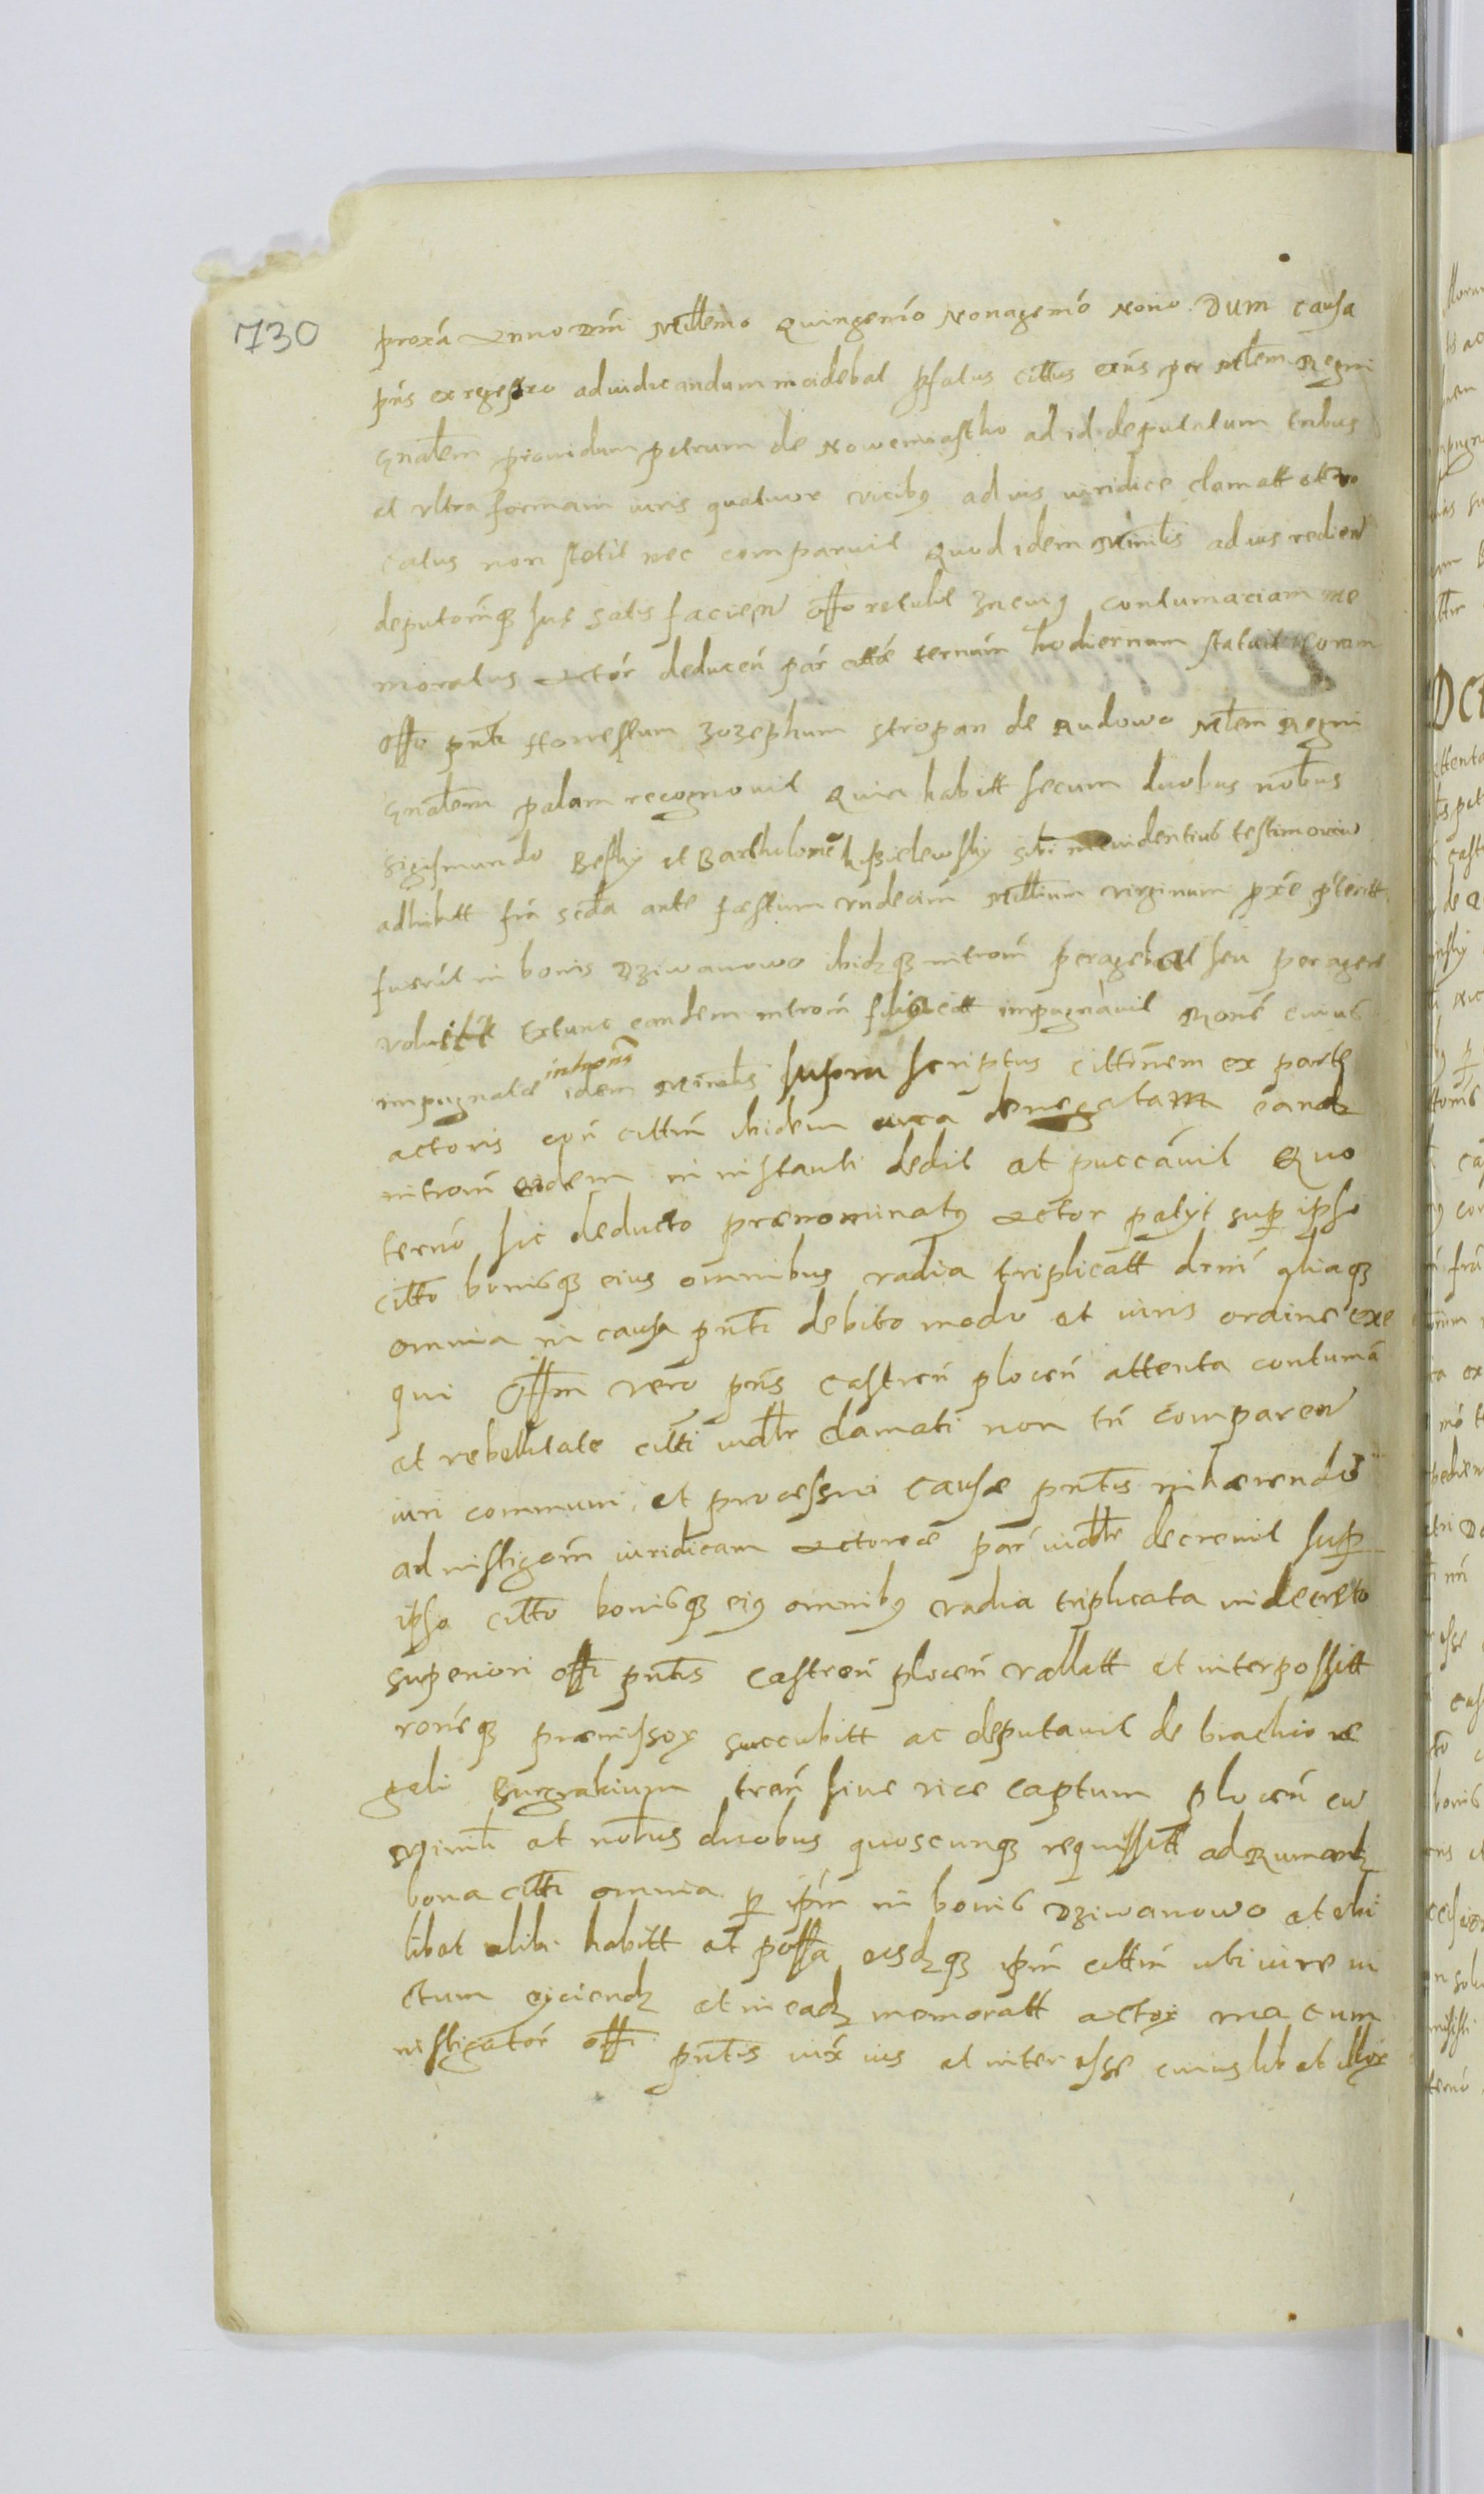 730
proxā Anno Dnī Millemo Quingenīo Nonagemō Nono Dum causa
pńs ex regestro adiudicandum incidebat pfatus cittus exńs per Mlem Regni
Gnalem providum petrum de Nowemiastho ad id deputatum tribus
et vltra formam iuris quatuor vicibq ad ius iuridice clamatt et vo
catus non stetit nec comparuit Quod idem Minrlis ad ius redien
deputōīqz suę satisfacien offo retulit In cuiq contumaciam me
moratus Actōr deduceń pār cittāe termīn hodiernum statuit coram
offo pntī Honestum Jozephum Stropan de Rudowo Mlem Regni
Gnalem palam recognovit Quia habitt secum duobus nobus
Sigismundo Besky et Bartholomē kisielewsky sibi in evidentius testimoniū
adhibitt fra scda ante festum vndecim Millium virginum pxe pteritt
fuerit in bonis Dziwanowo ibidzqz introm peragebat seu peragere
voluit Extunc eandem introm impugnavit Rone cuius
impugnatae intronis idem Minrlis supra scriptus cittinem ex parte
actoris cōn cittm ibidem circa denegatam eandz
introm eidem in instanti dedit et puccavit Quo
termō sic deducto praenominatq Actor petyt sup ipso
citto bonisqz eius omnibus vadia triplicatt drni aliaqz
omnia in causa pntī debito modo et iuris ordine exe
qui Offm vero pńs Castreń ploceń attenta contumā
et rebellitate cittī iudtr clamati non tń comparen
iuri communi et processui causae pntis inhaerendo
ad instigōm iuridicam Actoreae pār iudtr decrevit sup
ipso citto bonisqz eiq omnibq vadia triplicata in decreto
superiori offi pntis Castreń ploceń vallatt et interpossitt
roneqz praemissor succubitt ac deputavit de brachio re
gali Burgrabium treń sive vice captum ploceń cū
Minrli et nobus duobus quoscunqz requissitt ad Rumandz
bona citti omnia p ipm in bonis Dziwanowo et vbi
libet alibi habitt et possa eisdzqz ipm cittm vbi iure vi
ctum eyciendz et in eadz memoratt actor una cum
instigatōr offi pntis iux ius et interesse cuiuslibet illor